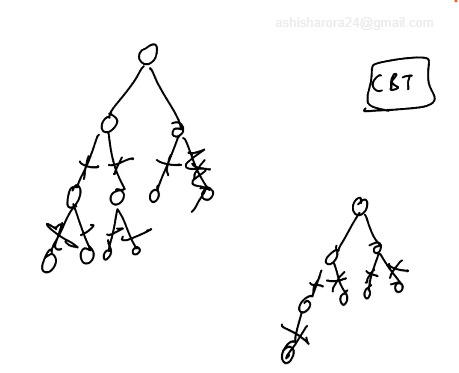 ashisharora24@gmail.com
CBT